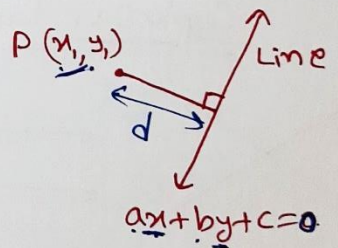 P (x₁, y₁)
Line
d
ax+by+c=0